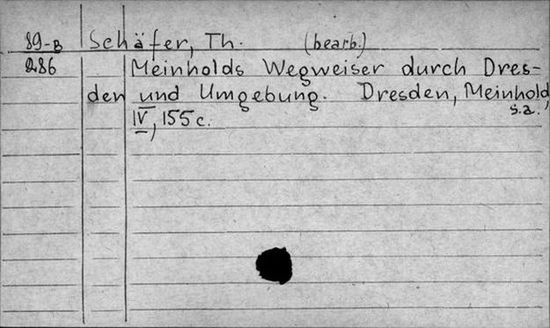 89-B Schäfer, Th. (bearb.)
286 Meinholds Wegweiser durch Dres-
den und Umgebung. Dresden, Meinhold,
s.a.,
IV, 155 c.